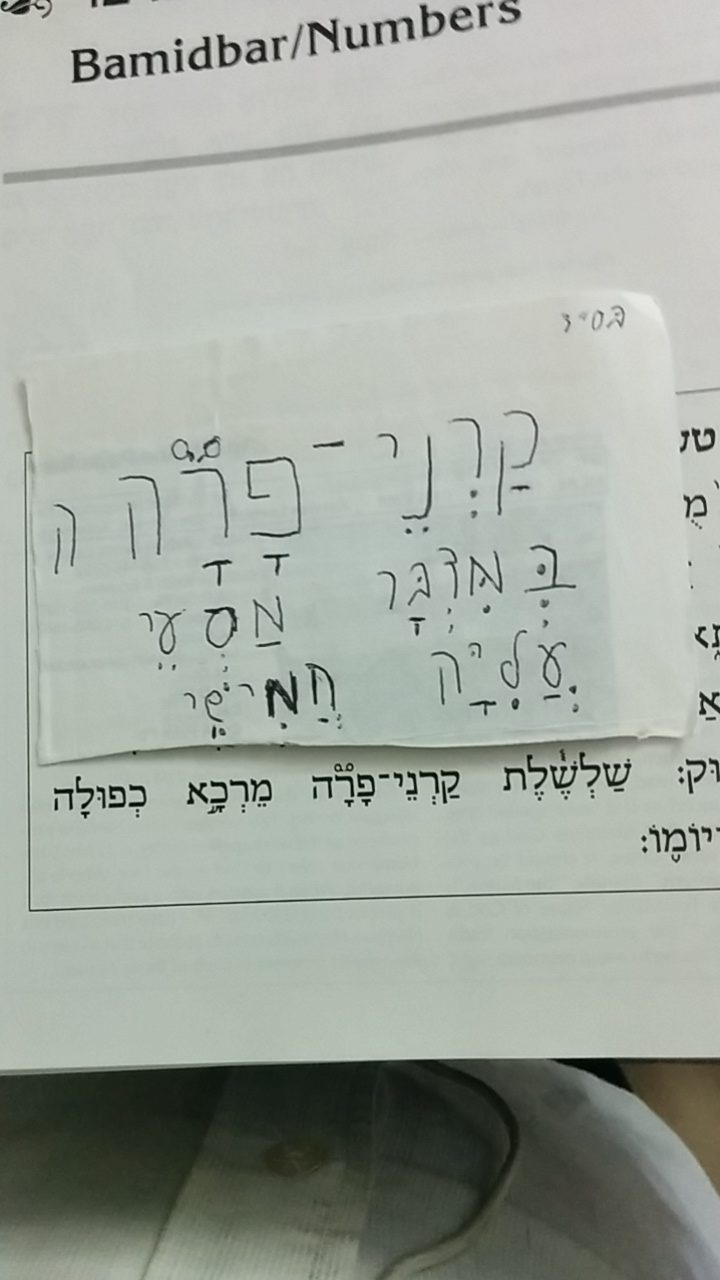 Bamidbar/Numbers
בס״ד
קַרְנֵי-פָּרָ֟ה ה ה
בְּמִדְבָּר מַסְעֵי
עֲלִיָּה חֲמִישִׁי
שַׁלְשֶׁ֓לֶת קַרְנֵי־פָרָ֟ה מֵרְכָ֦א כְּפוּלָה
יוֹמ֚וֹ: